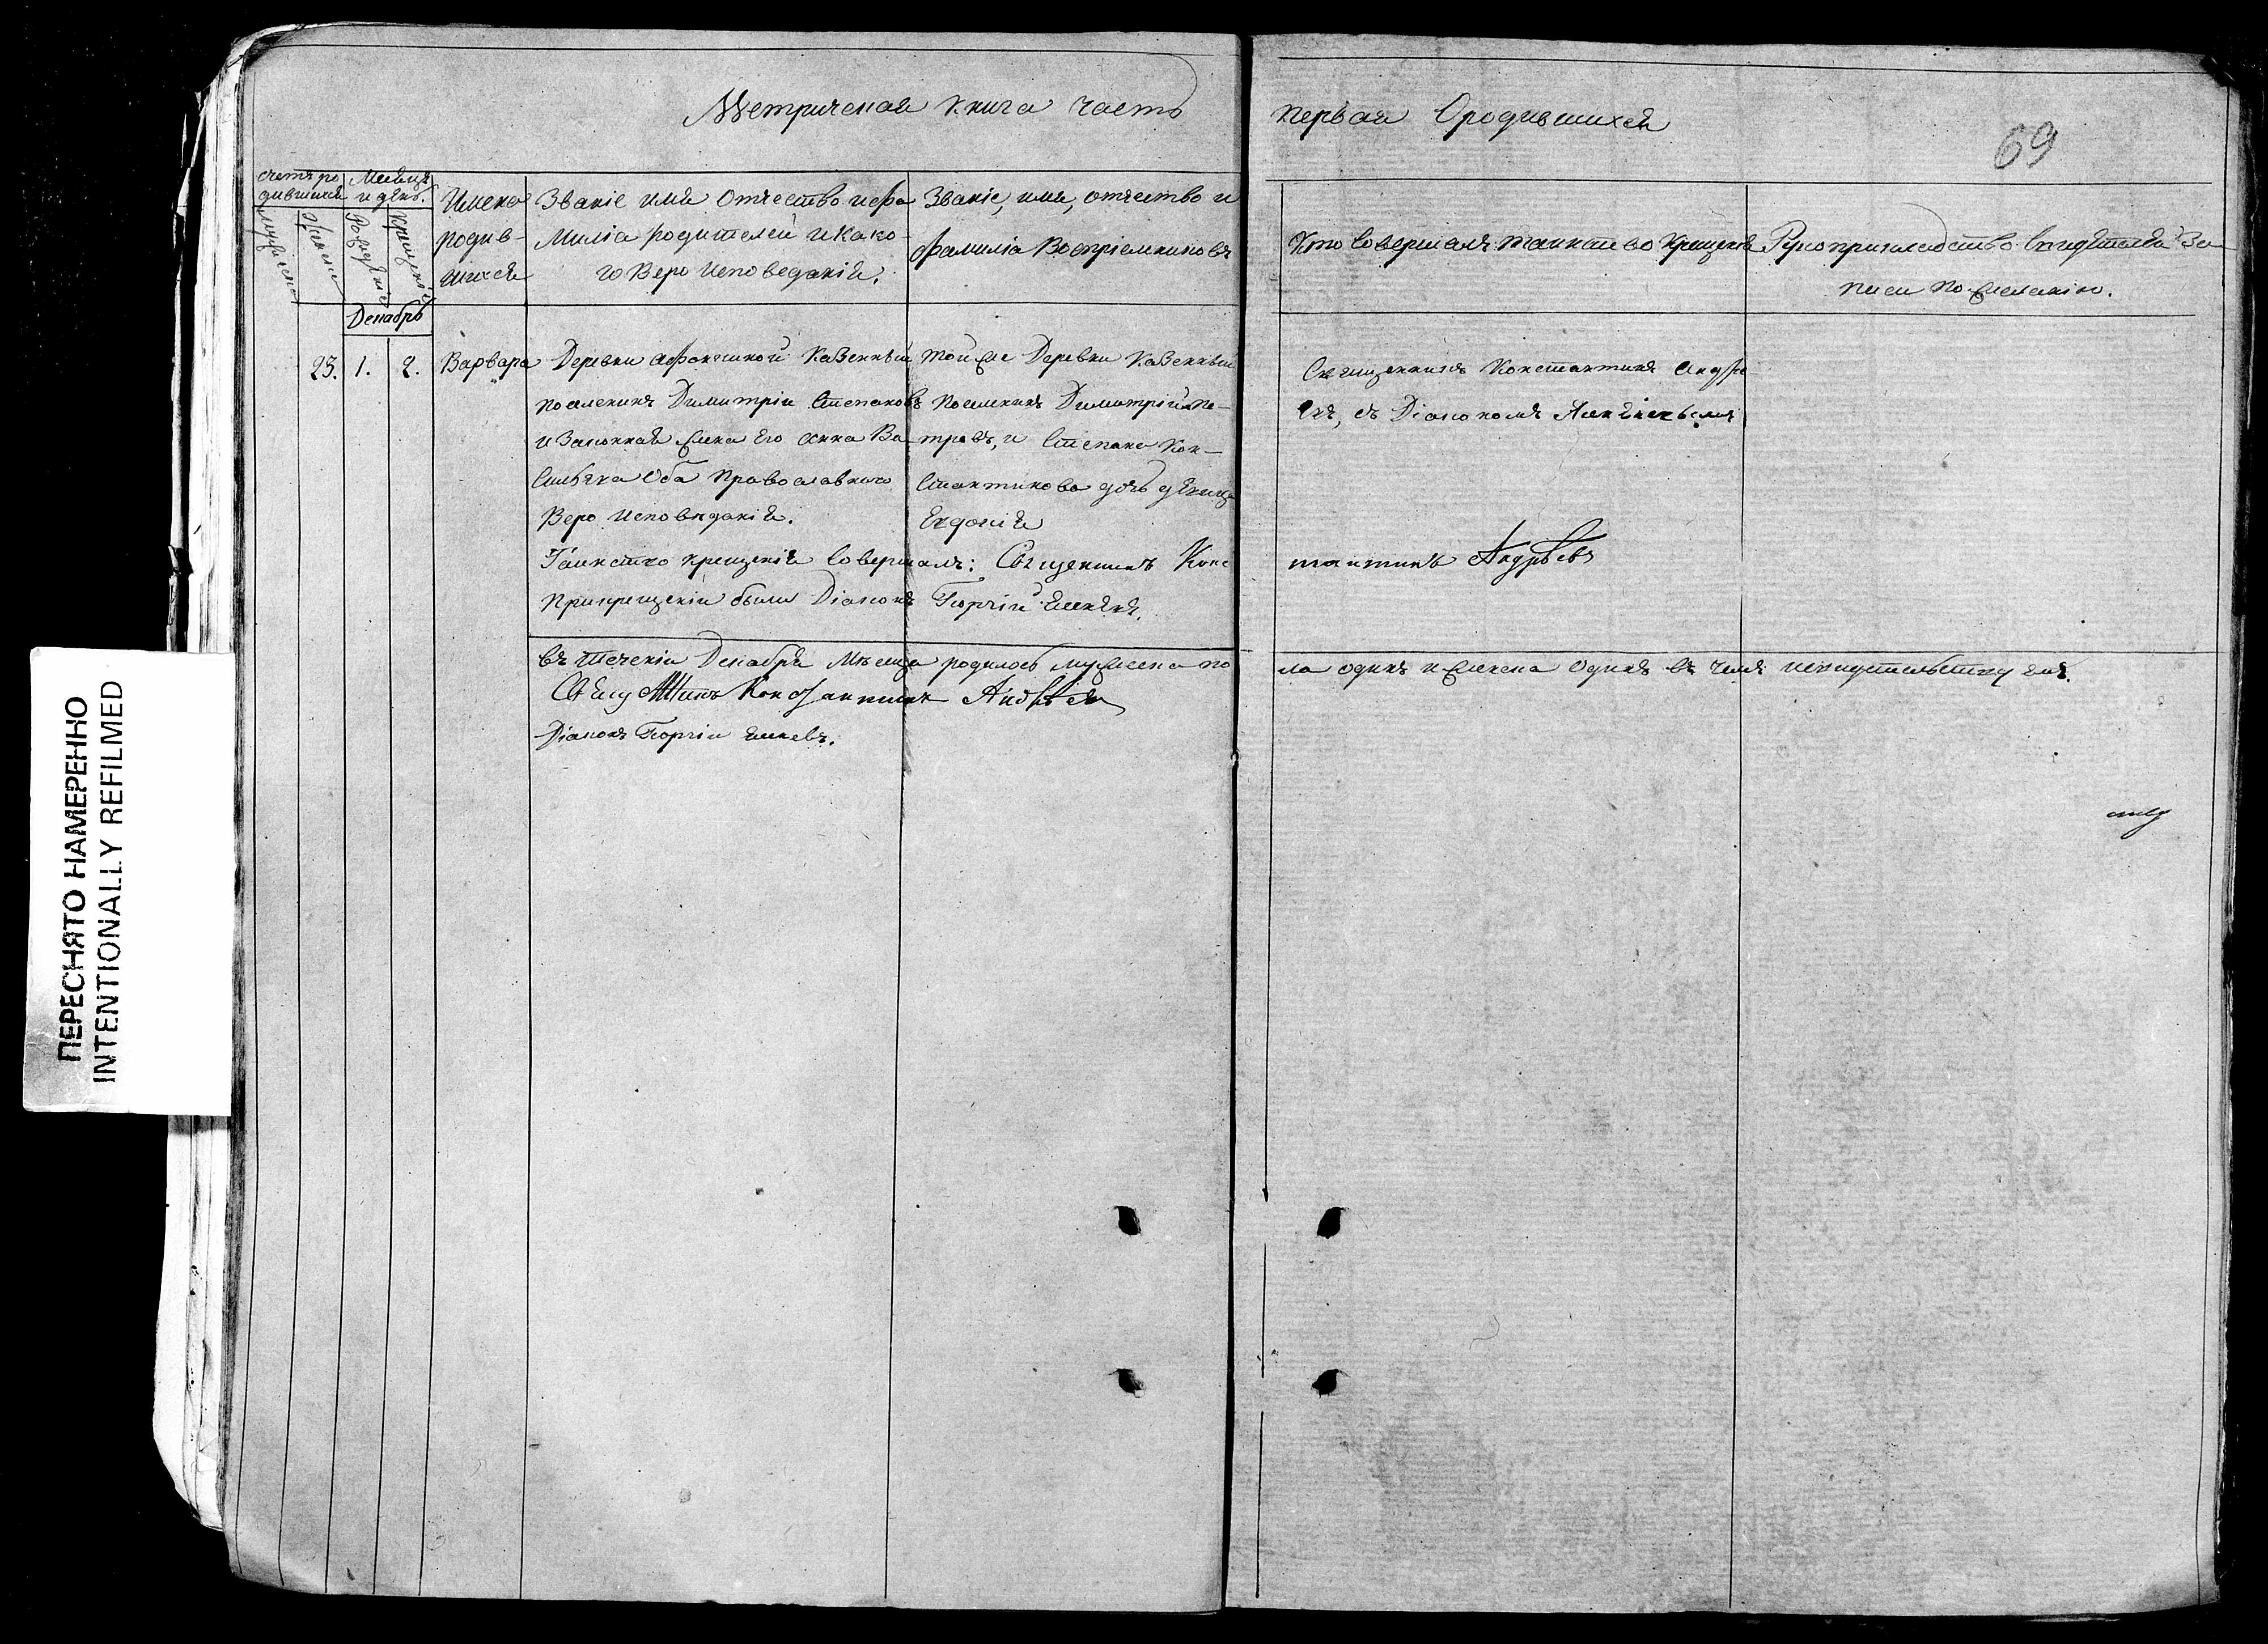 Метрическая книга часть первая О родившихся
69
счетъ ро Месяцъ
дившихся и день.
Мужеска
Женска
Рождения
Крещения
Имена
родив-
шихся
Званіе имя Отчество и фа
милія родителей и како-
го Веро исповеданія.
Званіе, имя, отчество и
фамилія Воспріемниковъ
Кто совершалъ таинство Крещенія
Рукоприкладство свидѣтелей За-
писи по желанію.
Декабрь
23. 1. 2. Варвара
Деревни Казенный
поселянинъ Димитрій Степановъ
и Законная жена Его Анна Ва-
сильева Оба Православнаго
Веро исповѣданія.
той же Деревни Казенный
поселянинъ Димитрій Пе-
тровъ, и Степана Кон-
стантинова дочь дѣвица
Евдокія
Священникъ Константинъ Андре
евъ, съ Діакономъ
Таинство крещенія совершалъ: Священникъ Константинъ Андрѣевъ
При крещеніи былъ Діаконъ Георгій
въ теченіи Декабря Мѣсяца родилось мужеска пола одинъ и женска одинъ въ чемъ и свидетельствуемъ.
Священникъ Константинъ Андрѣевъ
Діаконъ Георгій
ПЕРЕСНЯТО НАМЕРЕННО
INTENTIONALLY REFILMED